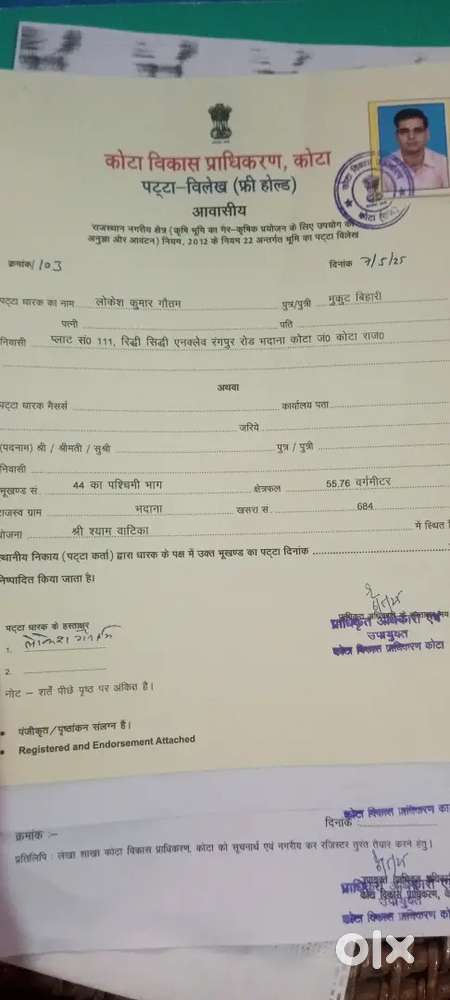 कोटा विकास प्राधिकरण, कोटा
पट्टा-विलेख (फ्री होल्ड)
आवासीय
राजस्थान नगरीय क्षेत्र (कृषि भूमि का गैर-कृषिक प्रयोजन के लिए उपयोग की
अनुज्ञा और आवंटन) नियम, 2012 के नियम 22 अन्तर्गत भूमि का पट्टा विलेख
क्रमांक/103 दिनांक 7/5/25
पट्टा धारक का नाम लोकेश कुमार गौतम पुत्र/पुत्री मुकुट बिहारी
पत्नी पति
निवासी प्लाट सं0 111, रिद्धी सिद्धी एनक्लेव रंगपुर रोड भदाना कोटा जं0 कोटा राज0
अथवा
पट्टा धारक मैसर्स कार्यालय पता
जरिये
(पदनाम) श्री / श्रीमती / सुश्री पुत्र / पुत्री
निवासी
भूखण्ड सं 44 का पश्चिमी भाग क्षेत्रफल 55.76 वर्गमीटर
राजस्व ग्राम भदाना खसरा सं 684
योजना श्री श्याम वाटिका में स्थित
स्थानीय निकाय (पट्टा कर्ता) द्वारा धारक के पक्ष में उक्त भूखण्ड का पट्टा दिनांक
निष्पादित किया जाता है।
पट्टा धारक के हस्ताक्षर
प्राधिकृत अधिकारी एवं
उपायुक्त
कोटा विकास प्राधिकरण कोटा
1. लोकेश गौतम
2.
नोट – शर्तें पीछे पृष्ठ पर अंकित है।
• पंजीकृत/पृष्ठांकन संलग्न है।
• Registered and Endorsement Attached
कोटा विकास प्राधिकरण का
क्रमांक :- दिनांक
प्रतिलिपि : लेखा शाखा कोटा विकास प्राधिकरण, कोटा को सूचनार्थ एवं नगरीय कर रजिस्टर तुरंत तैयार करने हेतु।
उपायुक्त
कोटा विकास प्राधिकरण को
olx